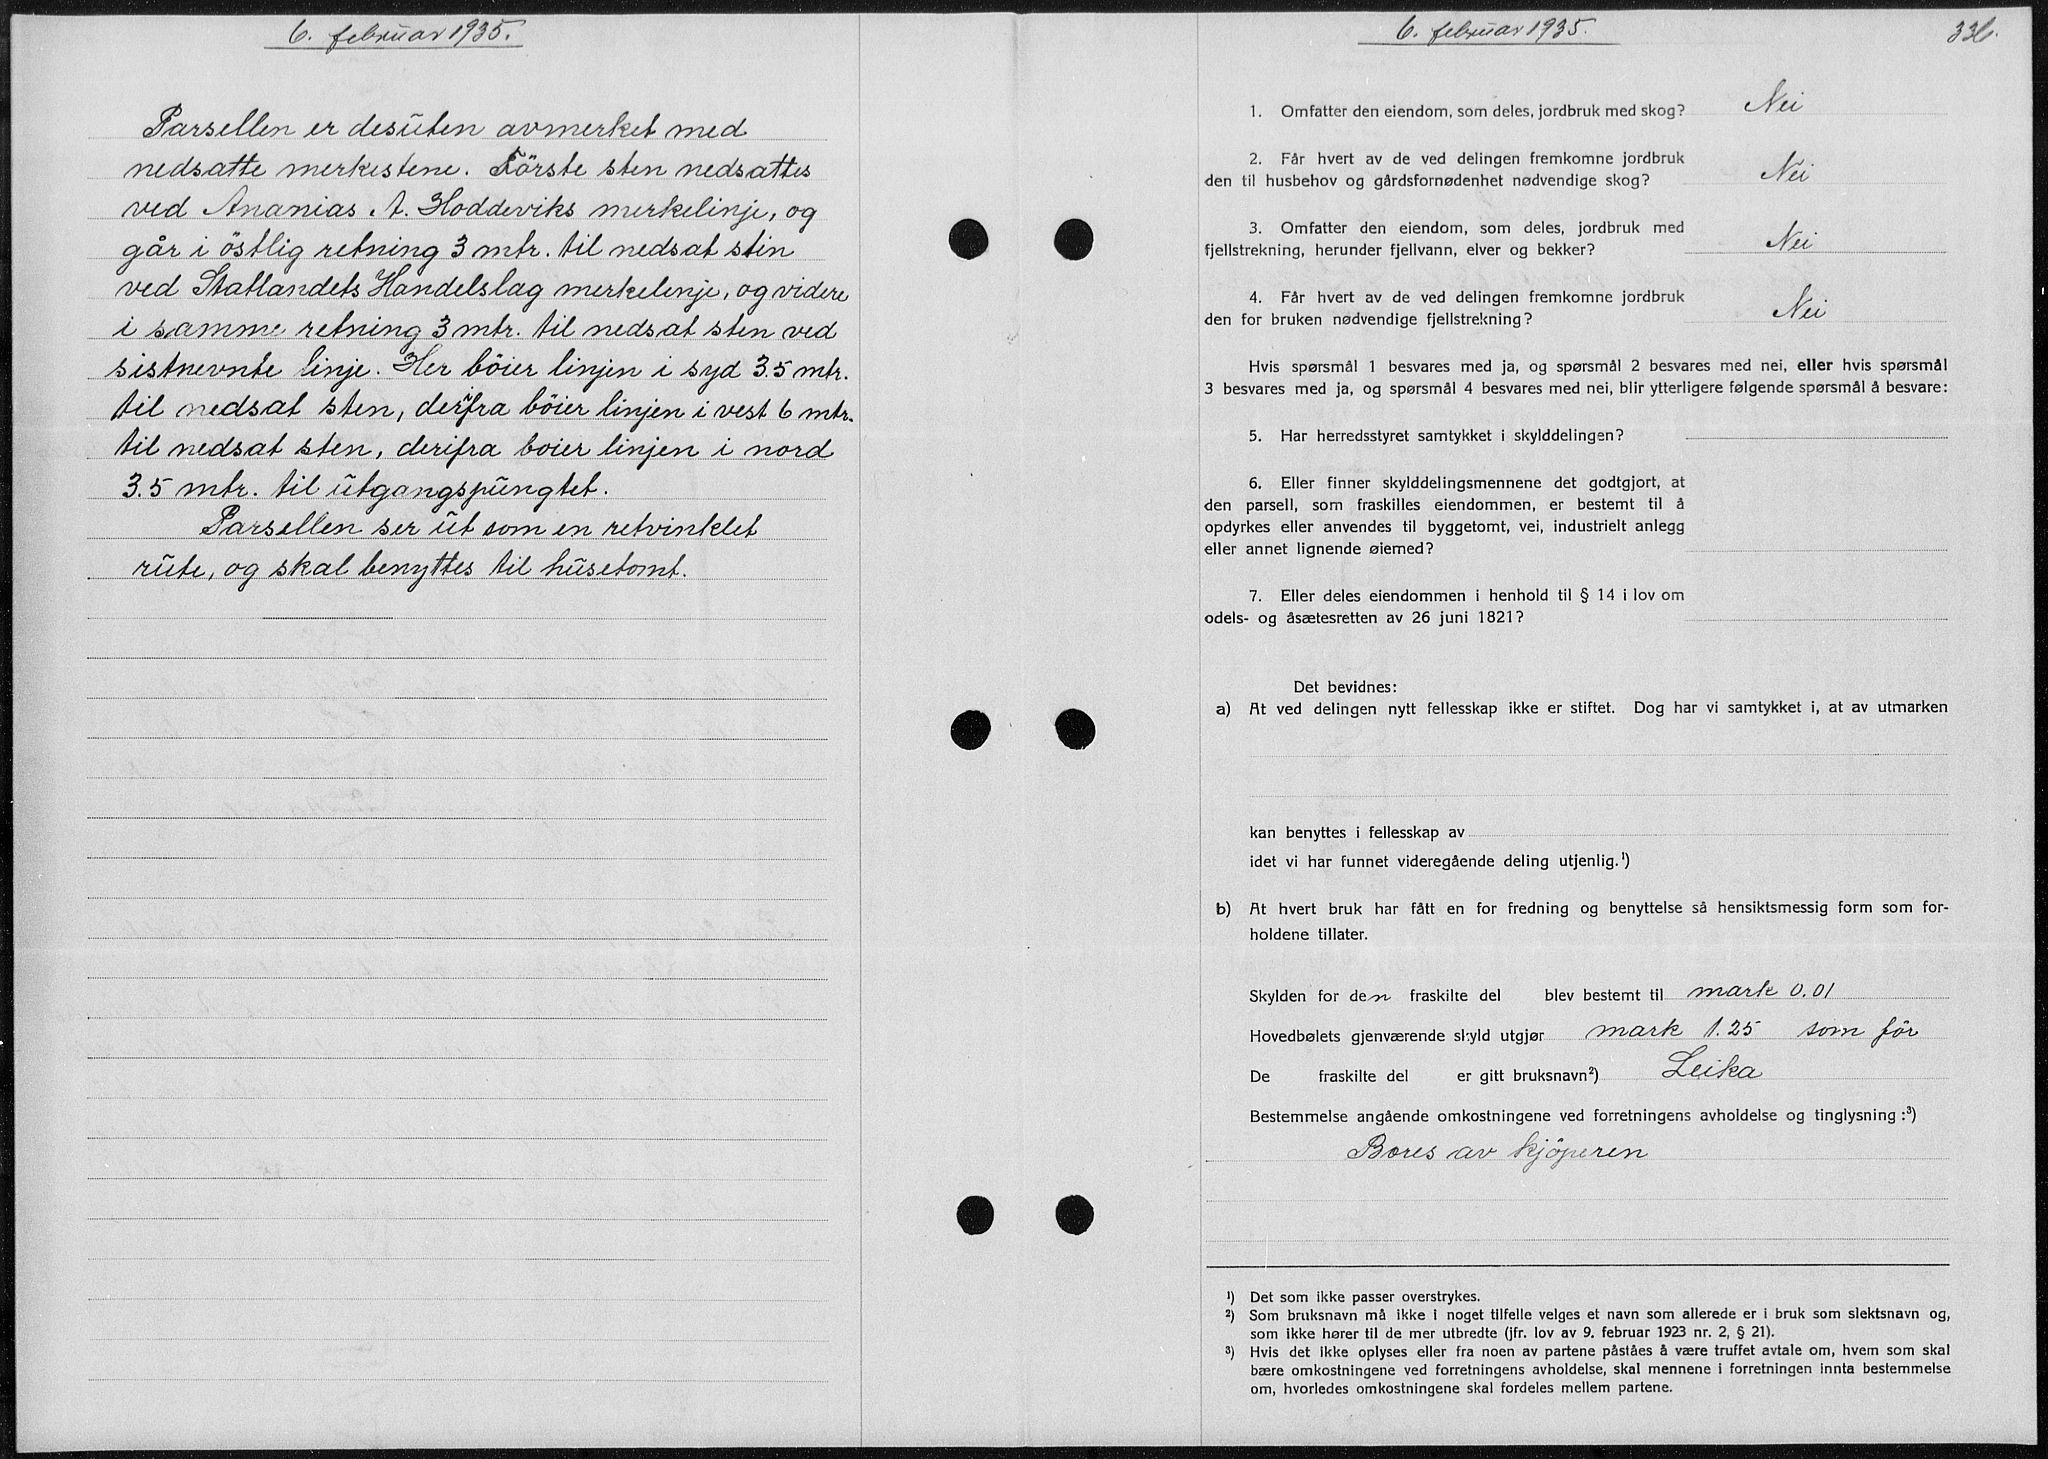 6. februar 1935.
Parsellen er desuten avmerket med
nedsatte merkestene. Förste sten nedsattes
ved Ananias A. Hoddeviks merkelinje, og
går i östlig retning 3 mtr. til nedsat stin
ved Statlandets Handelslag merkelinje, og videre
i samme retning 3 mtr. til nedsat sten ved
sistnevnte linje. Her böier linjen i syd 3.5 mtr.
til nedsat sten, derifra böier linjen i vest 6 mtr.
til nedsat sten, derifra boier linjen i nord
3.5 mtr. til utgangspungtet.
Parsellen ser ut som en retvinklet
rute, og skal benyttes til husetomt.
6. februar 1935.
336.
1. Omfatter den eiendom, som deles, jordbruk med skog? Nei
2. Får hvert av de ved delingen fremkomne jordbruk
den til husbehov og gårdsfornødenhet nødvendige skog? Nei
3. Omfatter den eiendom, som deles, jordbruk med
fjellstrekning, herunder fjellvann, elver og bekker? Nei
4. Får hvert av de ved delingen fremkomne jordbruk
den for bruken nødvendige fjellstrekning? Nei
Hvis spørsmål 1 besvares med ja, og spørsmål 2 besvares med nei, eller hvis spørsmål
3 besvares med ja, og spørsmål 4 besvares med nei, blir ytterligere følgende spørsmål å besvare:
5. Har herredsstyret samtykket i skylddelingen?
6. Eller finner skylddelingsmennene det godtgjort, at
den parsell, som fraskilles eiendommen, er bestemt til å
opdyrkes eller anvendes til byggetomt, vei, industrielt anlegg
eller annet lignende øiemed?
7. Eller deles eiendommen i henhold til § 14 i lov om
odels- og åsætesretten av 26 juni 1821?
Det bevidnes:
a) At ved delingen nytt fellesskap ikke er stiftet. Dog har vi samtykket i, at av utmarken
kan benyttes i fellesskap av
idet vi har funnet videregående deling utjenlig.¹)
b) At hvert bruk har fått en for fredning og benyttelse så hensiktsmessig form som for-
holdene tillater.
Skylden for den fraskilte del blev bestemt til mark 0.01
Hovedbølets gjenværende skyld utgjør mark 1.25 som för
De fraskilte del er gitt bruksnavn²) Leika
Bestemmelse angående omkostningene ved forretningens avholdelse og tinglysning:³)
Bæres av kjöperen
¹) Det som ikke passer overstrykes.
²) Som bruksnavn må ikke i noget tilfelle velges et navn som allerede er i bruk som slektsnavn og,
som ikke hører til de mer utbredte (jfr. lov av 9. februar 1923 nr. 2, § 21).
³) Hvis det ikke oplyses eller fra noen av partene påståes å være truffet avtale om, hvem som skal
bære omkostningene ved forretningens avholdelse, skal mennene i forretningen innta bestemmelse
om, hvorledes omkostningene skal fordeles mellem partene.